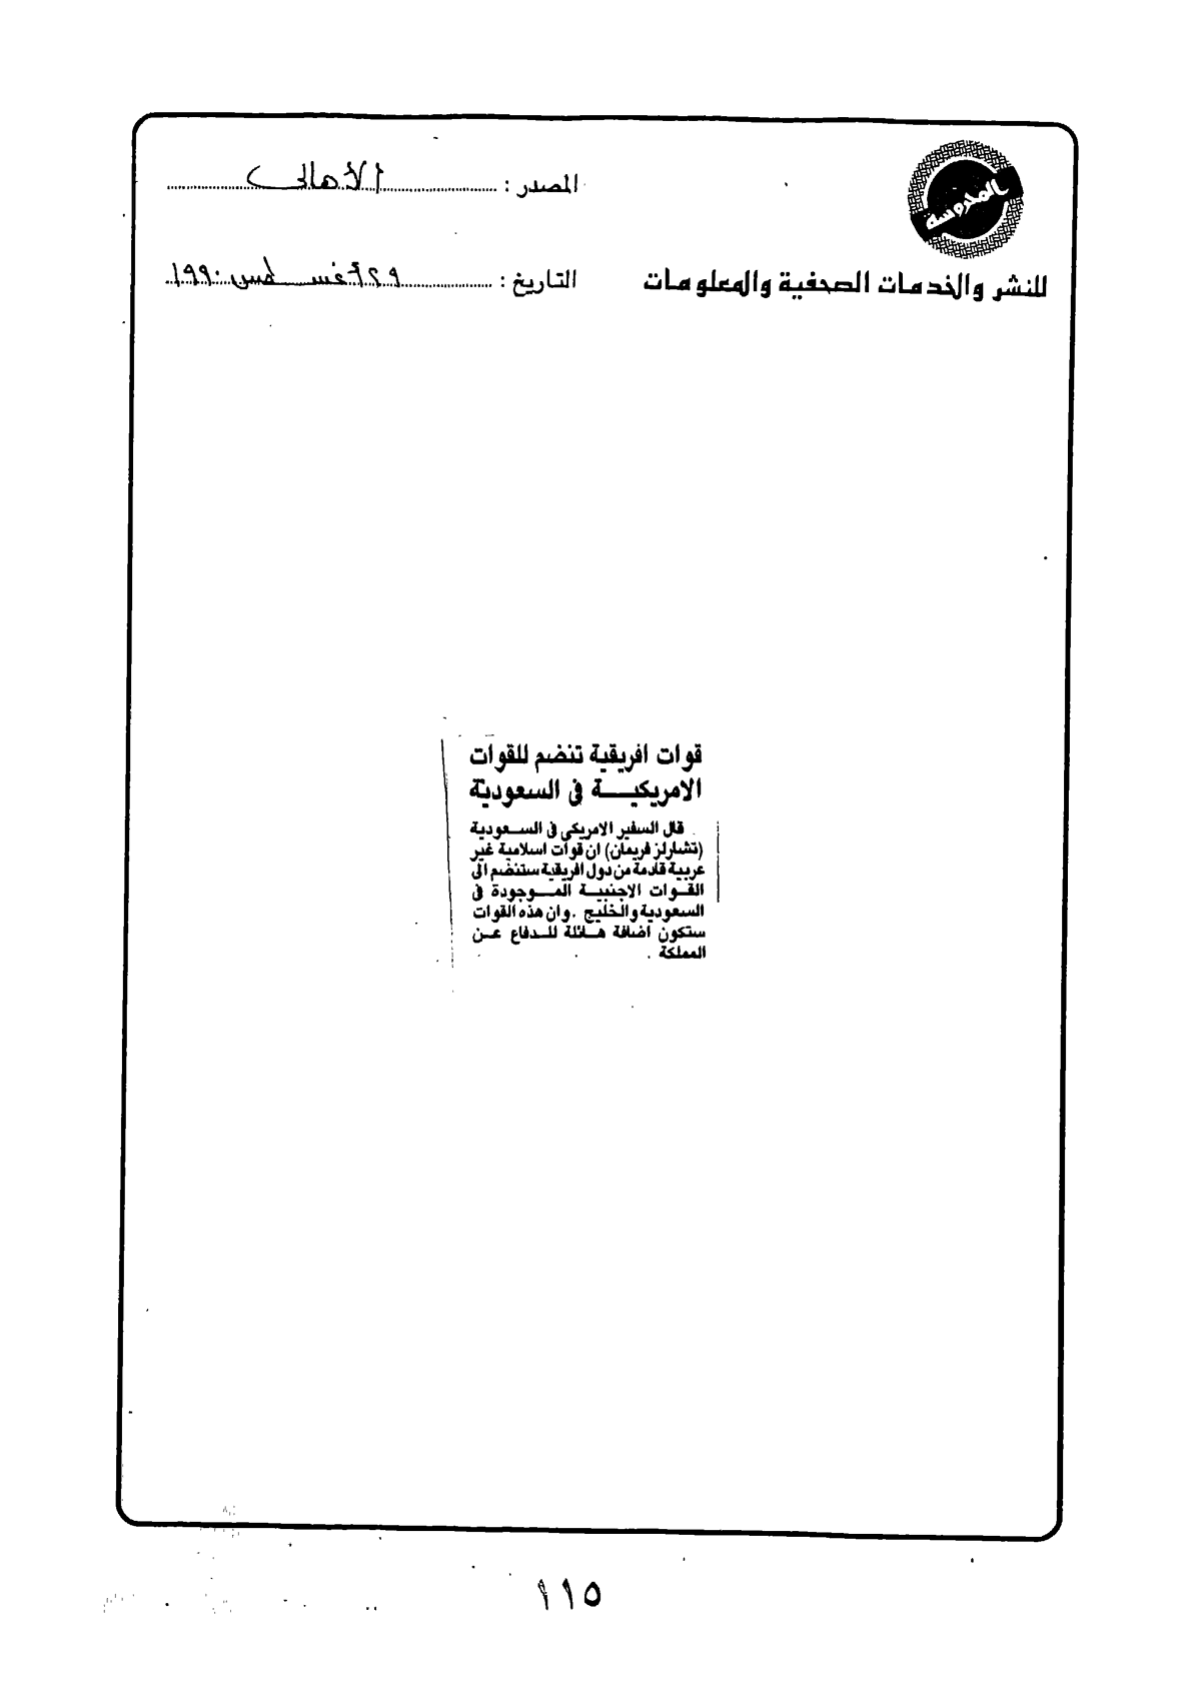 المحروسة
للنشر والخدمات الصحفية والمعلومات
المصدر : الأهالى
التاريخ : ٢٩ أغسطس ١٩٩٠
قوات افريقية تنضم للقوات
الامريكيـــة فى السعودية
قال السفير الامريكى فى الســعودية
(تشارلز فريمان) ان قوات اسلامية غير
عربية قادمة من دول افريقية ستنضم الى
القــوات الاجنبيــة المــوجودة فى
السعودية والخليج . وان هذه القوات
ستكون اضافة هــائلة للــدفاع عــن
المملكة .
١١٥